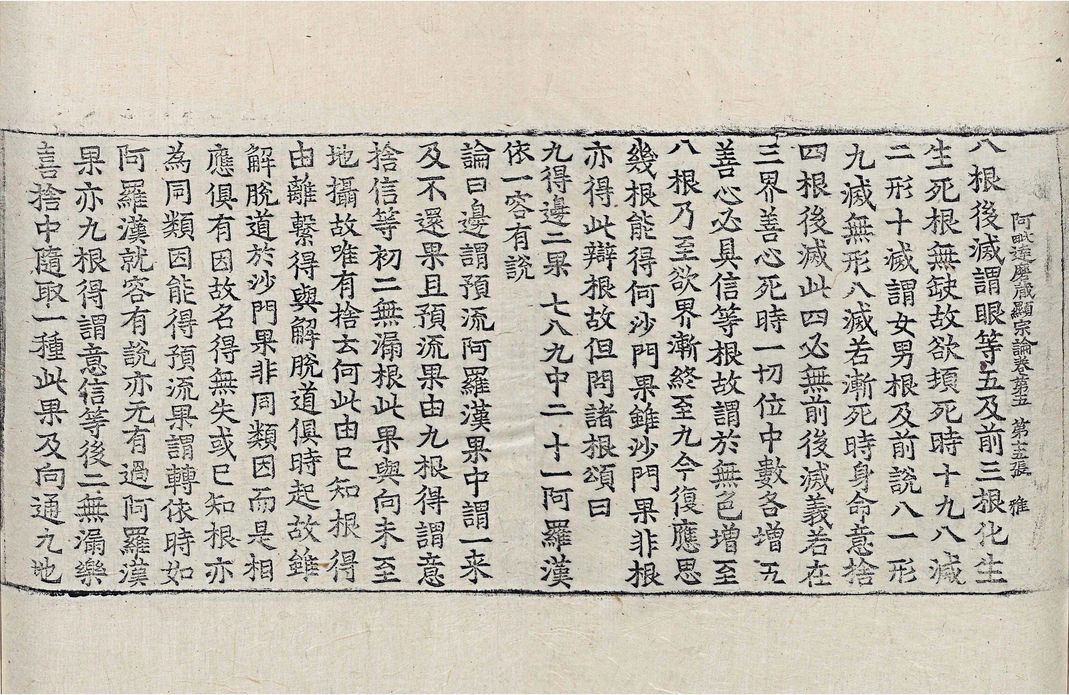 阿毗達磨藏顯宗論卷第五 第十五張 雅
八根後滅謂眼等五及前三根化生
生死根無缺故欲頓死時十九八滅
二形十滅謂女男根及前說八一形
九滅無形八滅若漸死時身命意捨
四根後滅此四必無前後滅義若在
三界善心死時一切位中數各增五
善心必具信等根故謂於無色增至
八根乃至欲界漸終至九今復應思
幾根能得何沙門果雖沙門果非根
亦得此辯根故但問諸根頌曰
九得邊二果 七八九中二 十一阿羅漢
依一容有說
論曰邊謂預流阿羅漢果中謂一来
及不還果且預流果由九根得謂意
捨信等初二無漏根此果與向未至
地攝故唯有捨去何此由已知根得
由離繫得與解脫道俱時起故雖
解脫道於沙門果非同類因而是相
應俱有因故名得無失或已知根亦
為同類因能得預流果謂轉依時如
阿羅漢就容有說亦无有過阿羅漢
果亦九根得謂意信等後二無漏樂
喜捨中隨取一種此果及向通九地